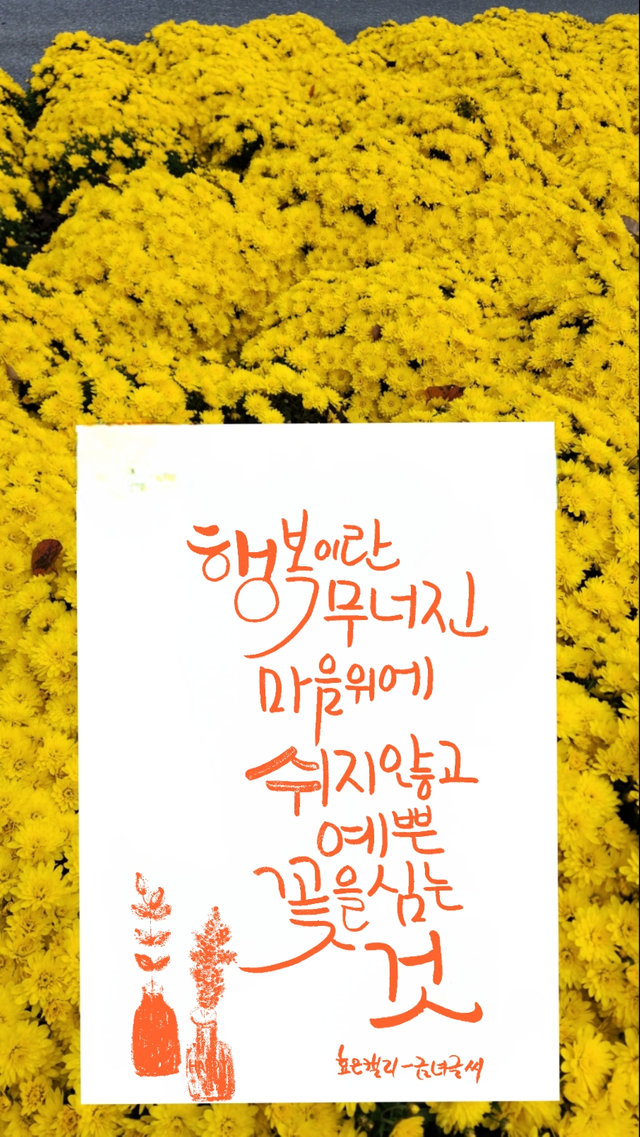 행복이란
무너진
마음위에
쉬지않고
예쁜
꽃을심는
것
효은캘리-금녀글씨